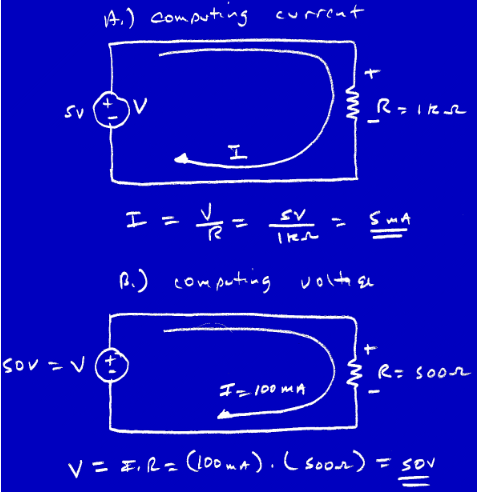 A.) computing current
+
5V + - V
R = 1kΩ
-
I
I = V/R = 5V/1kΩ = 5mA
B.) computing voltage
+
50V = V + -
R = 500Ω
-
I = 100mA
V = I.R = (100mA).(500Ω) = 50V